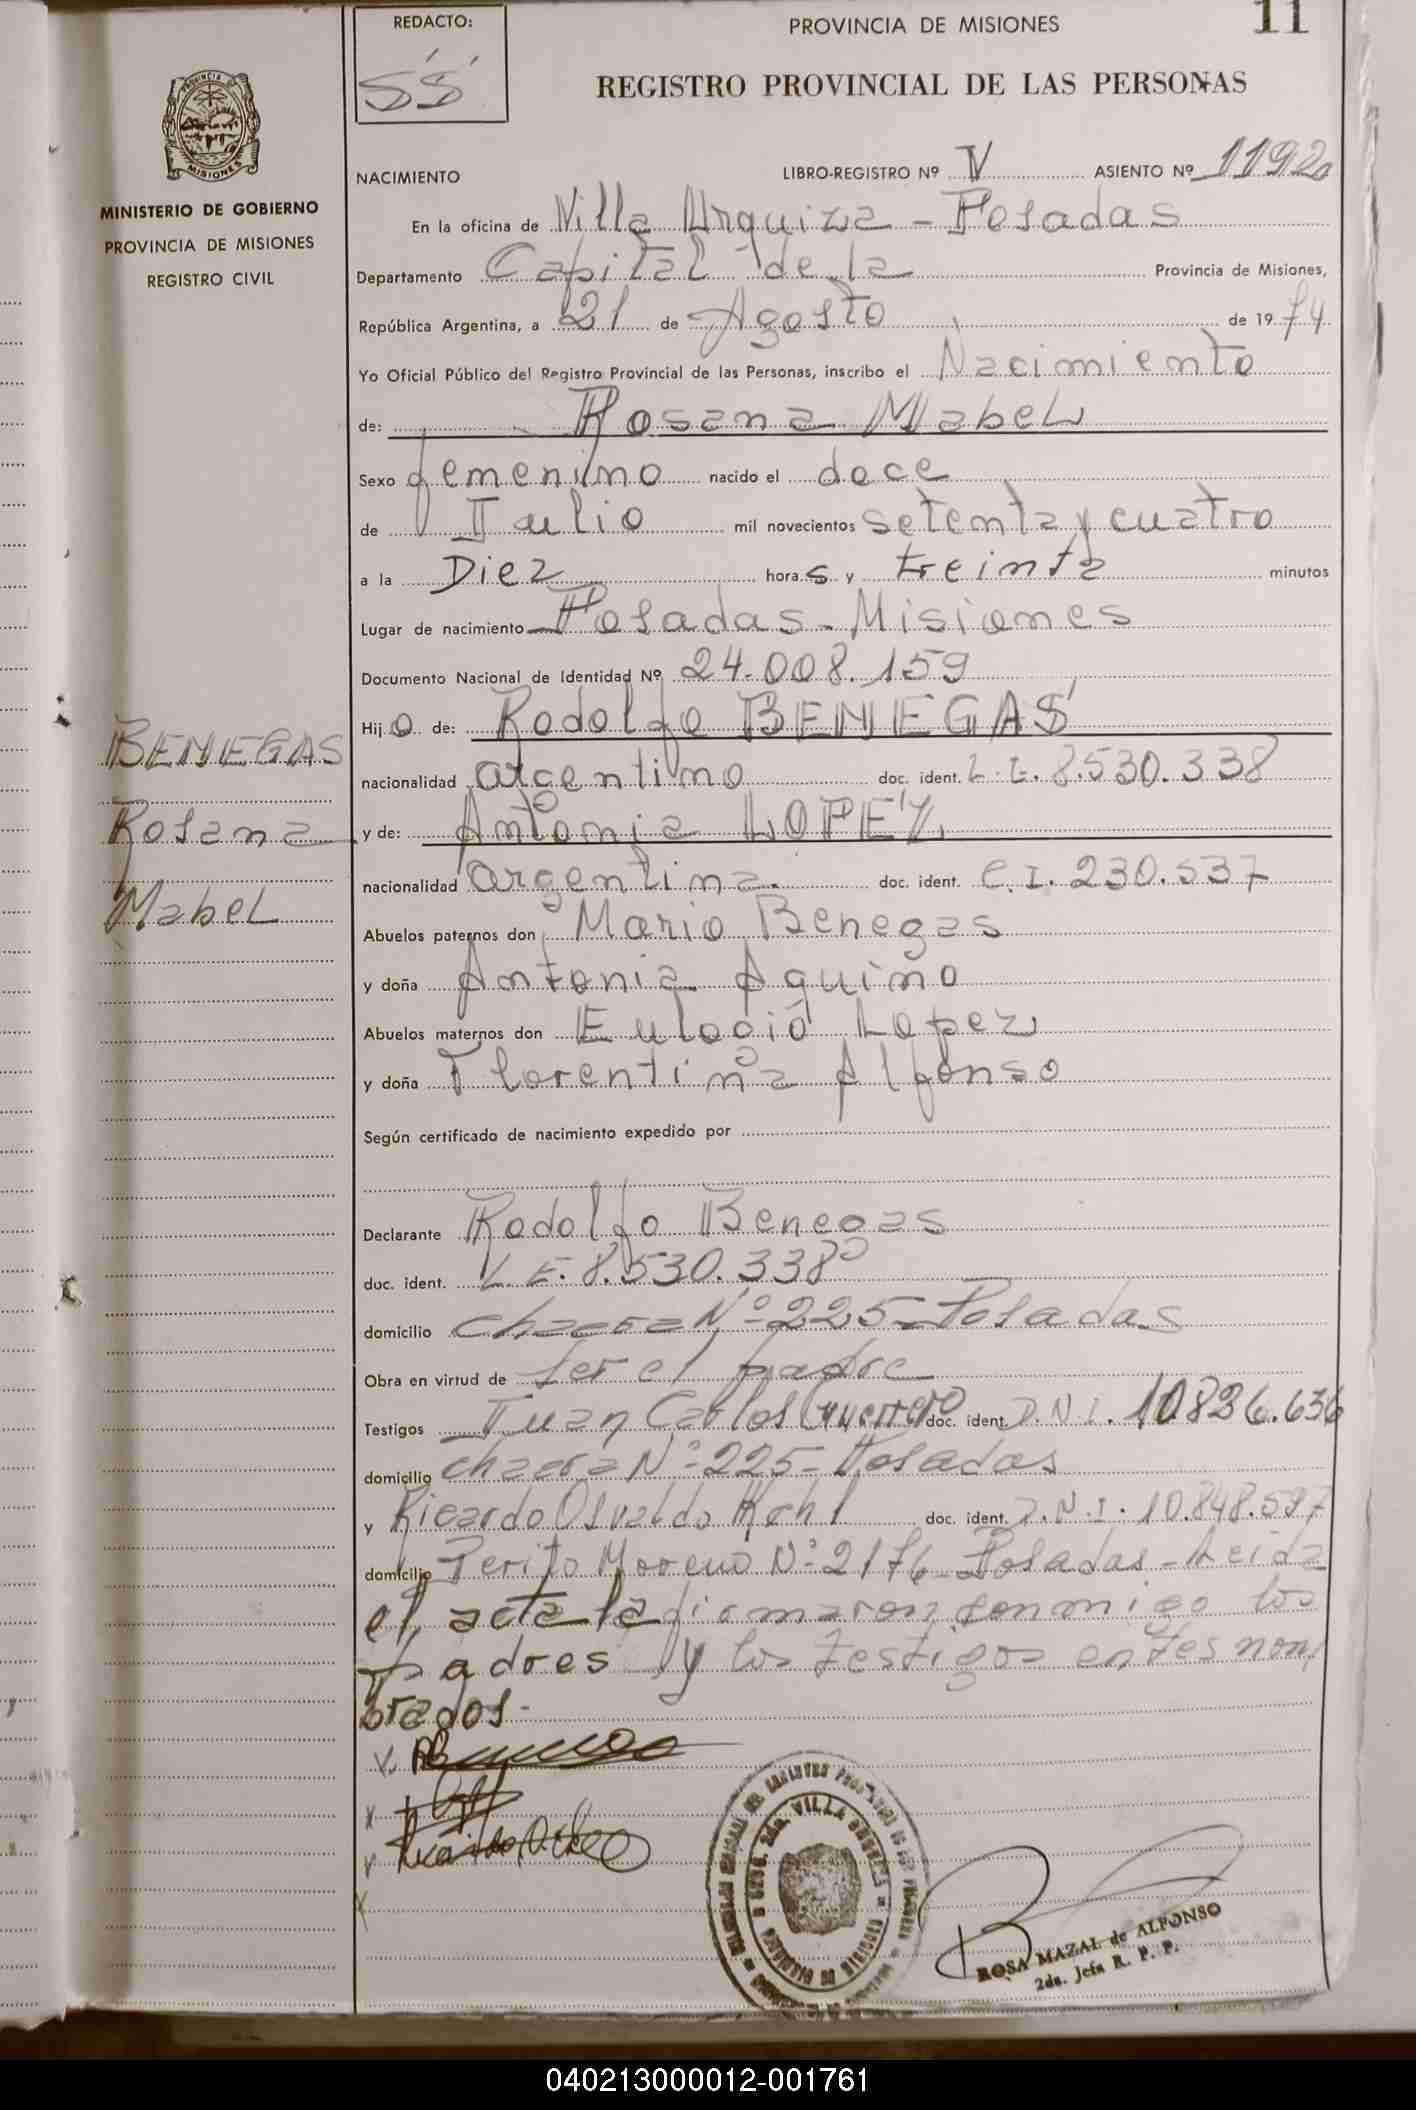 REDACTO:
SS
PROVINCIA DE MISIONES
11
REGISTRO PROVINCIAL DE LAS PERSONAS
PROVINCIA DE
MISIONES
MINISTERIO DE GOBIERNO
PROVINCIA DE MISIONES
REGISTRO CIVIL
NACIMIENTO LIBRO-REGISTRO Nº V ASIENTO Nº 1192
En la oficina de Villa Urquiza - Posadas
Departamento Capital de la Provincia de Misiones,
República Argentina, a 21 de Agosto de 1974
Yo Oficial Público del Registro Provincial de las Personas, inscribo el Nacimiento
de: Rosana Mabel
Sexo femenino nacido el doce
de Julio mil novecientos setenta y cuatro
a la Diez horas y treinta minutos
Lugar de nacimiento Posadas - Misiones
Documento Nacional de Identidad Nº 24.008.159
Hijo de: Rodolfo BENEGAS
nacionalidad argentino doc. ident. L.E. 8.530.338
y de: Antonia LOPEZ
nacionalidad argentina. doc. ident. C.I. 230.537
Abuelos paternos don Mario Benegas
y doña Antonia Aquino
Abuelos maternos don Eulogio Lopez
y doña Florentina Alfonso
Según certificado de nacimiento expedido por
Declarante Rodolfo Benegas
doc. ident. L.E. 8.530.338
domicilio chacra Nº 225 - Posadas
Obra en virtud de ser el padre
Testigos Juan Carlos Guerrero doc. ident. D.N.I. 10.836.636
domicilio chacra Nº 225 - Posadas
y Ricardo Osvaldo Kohl doc. ident. D.N.I. 10.848.597
domicilio Perito Moreno Nº 2176 - Posadas - Leida
el acta la firmaron conmigo los
padres y los testigos antes nom
brados -
BENEGAS
Rosana
Mabel
ROSA MAZAL de ALFONSO
2da. Jefa R. P. P.
040213000012-001761